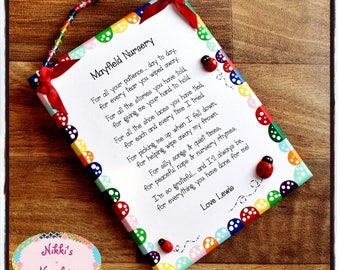 Mayfield Nursery
For all your patience, day to day,
for every tear you wiped away.
For all the stories you have told,
for giving me your hand to hold.
For all the shoe laces you have tied,
for each and every time I tried.
For picking me up when I fell down,
for helping wipe away my frown.
For silly songs & quiet times,
for peaceful naps & nursery rhymes.
I'm so grateful, and I'll always be,
for everything you have done for me!
Love Lewis
Nikki's